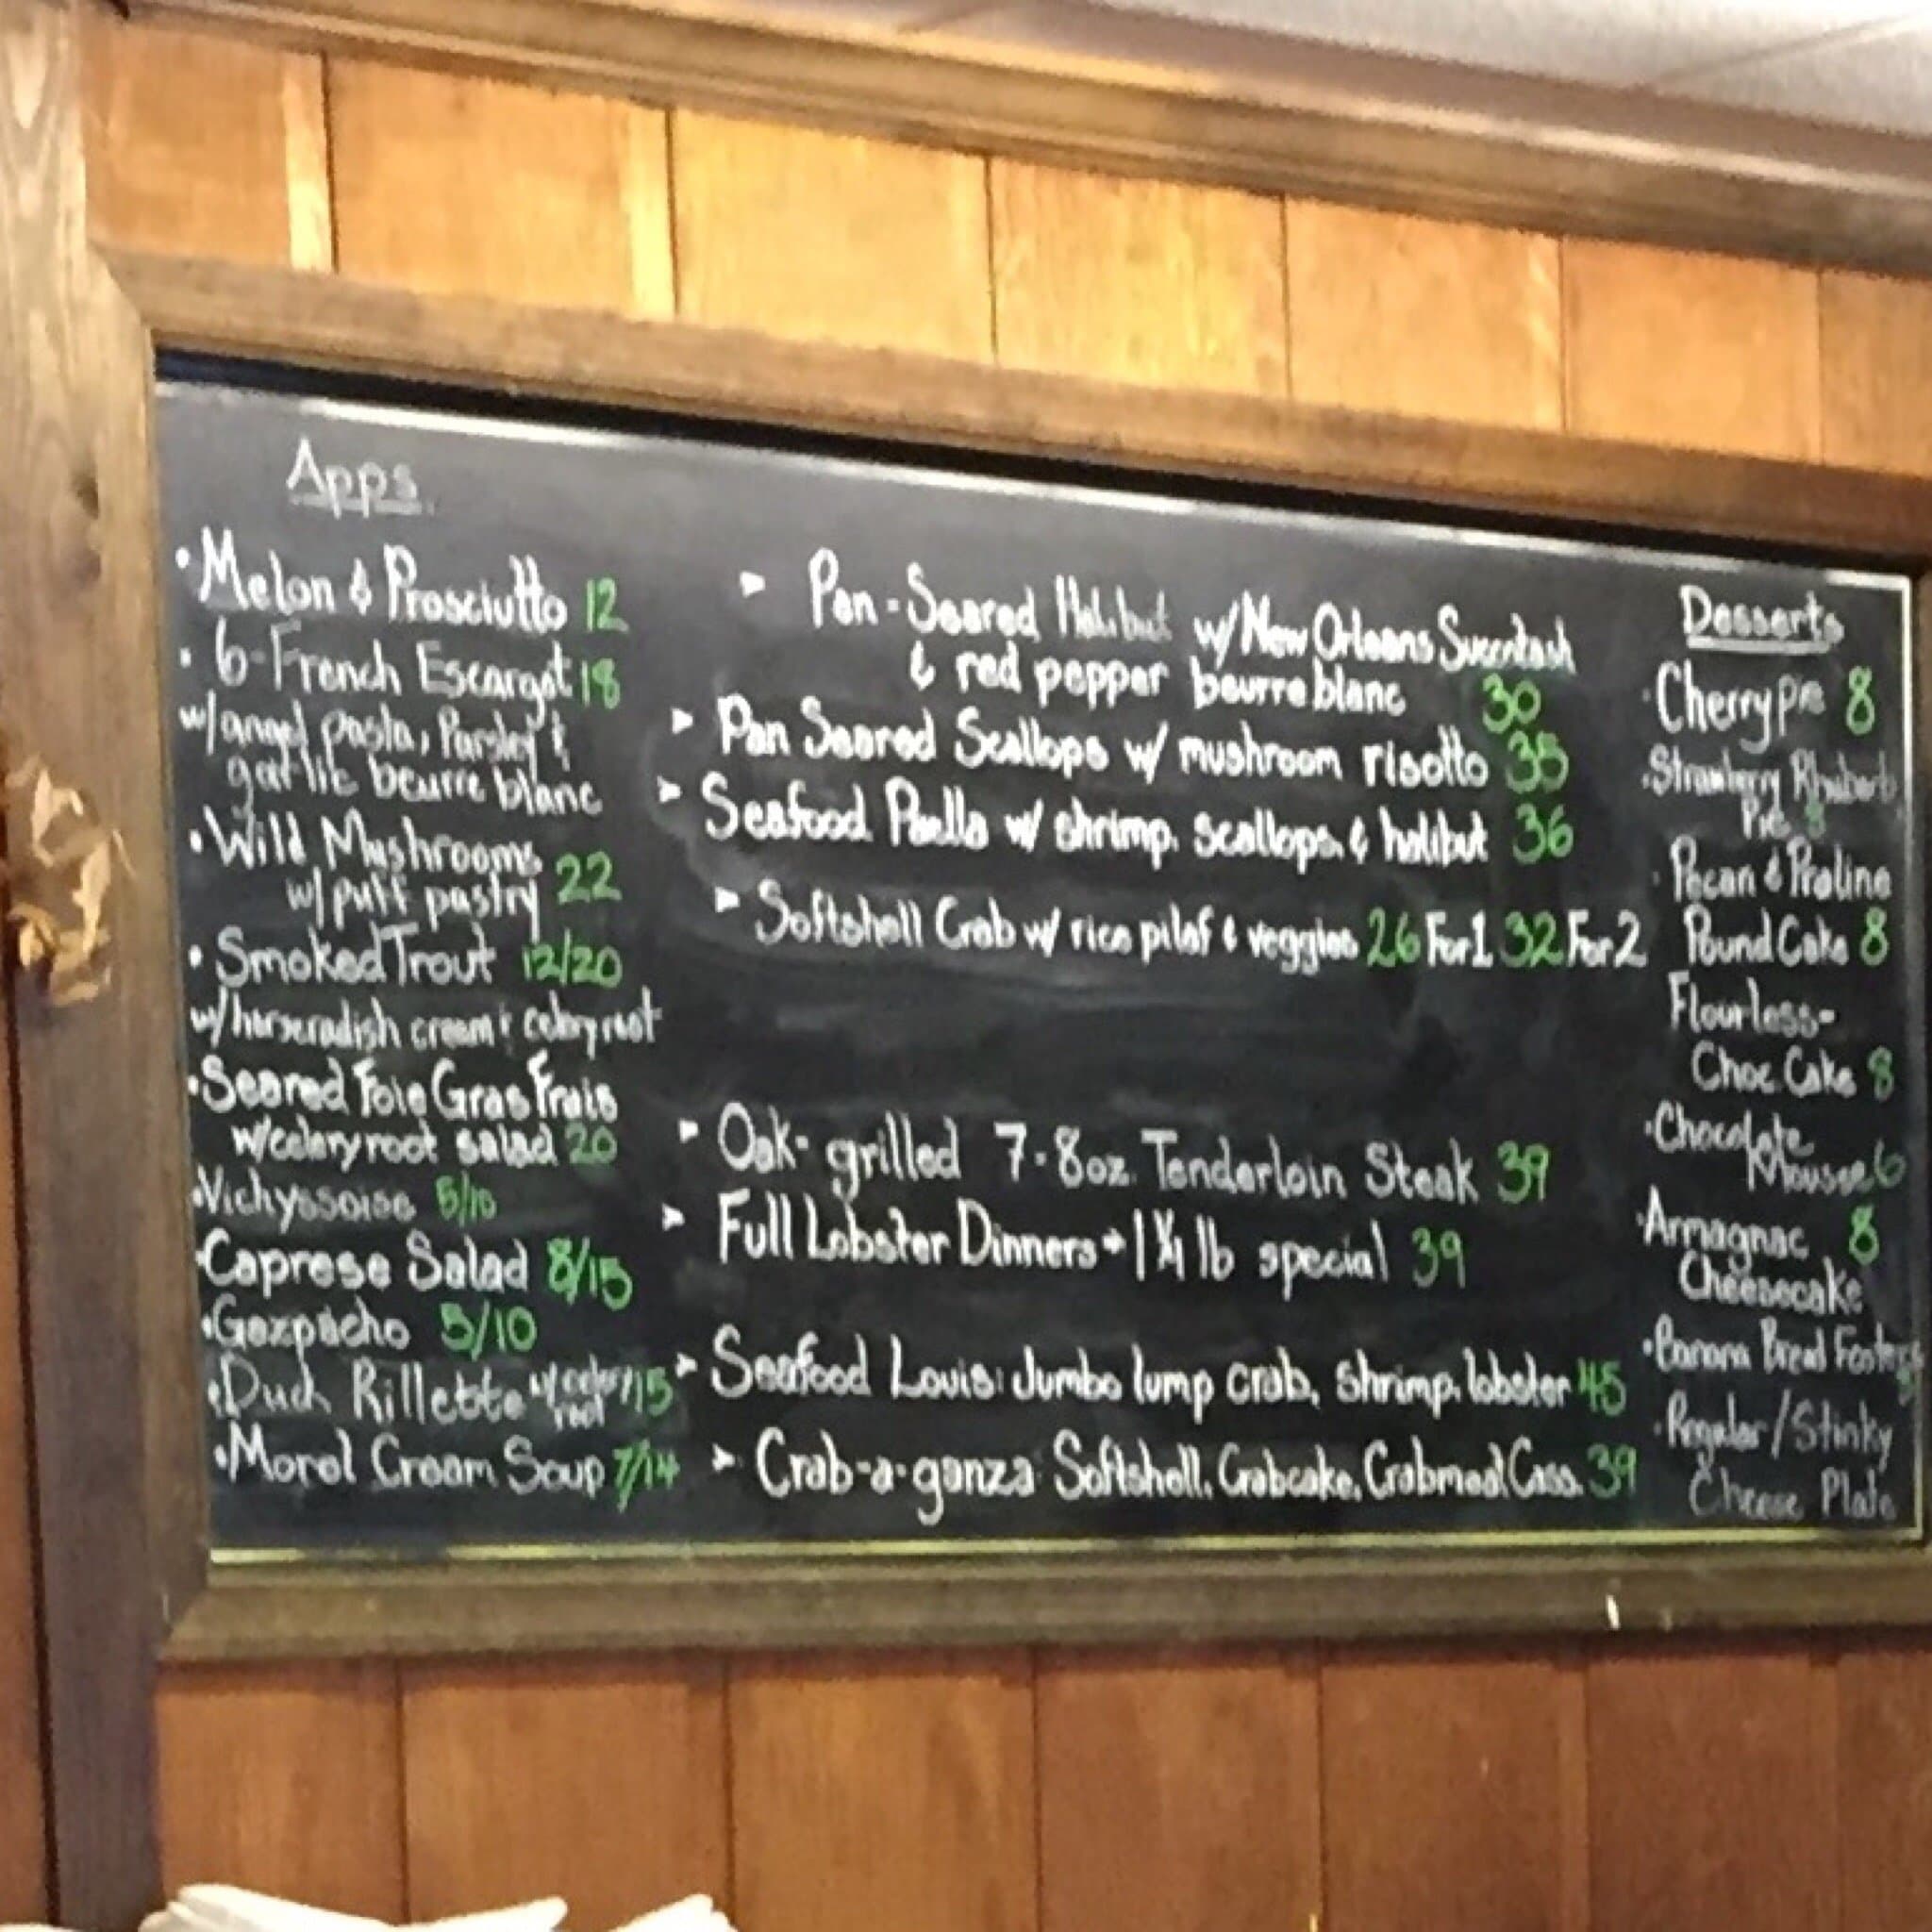 Apps
• Melon & Prosciutto 12
• 6-French Escargot 18
w/angel pasta, Parsley &
garlic beurre blanc
• Wild Mushrooms
w/puff pastry 22
• Smoked Trout 12/20
w/horseradish cream & celeryroot
• Seared Foie Gras Frais
w/celeryroot salad 20
• Vichyssoise 5/10
• Caprese Salad 8/15
• Gazpacho 5/10
• Duck Rillette w/celery root 15
• Morel Cream Soup 7/14
➤ Pan-Seared Halibut w/New Orleans Succotash
& red pepper beurre blanc 30
➤ Pan Seared Scallops w/ mushroom risotto 35
➤ Seafood Paella w/ shrimp, scallops, & halibut 36
➤ Softshell Crab w/ rice pilaf & veggies 26 For 1 32 For 2
➤ Oak-grilled 7-8oz. Tenderloin Steak 39
➤ Full Lobster Dinners → 1 1/4 lb special 39
➤ Seafood Louis: Jumbo lump crab, shrimp, lobster 45
➤ Crab-a-ganza: Softshell, Crabcake, Crabmeat Cass. 39
Desserts
• Cherry Pie 8
• Strawberry Rhubarb
Pie 8
• Pecan & Praline
Pound Cake 8
Flourless-
Choc. Cake 8
• Chocolate
Mousse 6
• Armagnac 8
Cheesecake
• Banana Bread
• Regular/Stinky
Cheese Plate